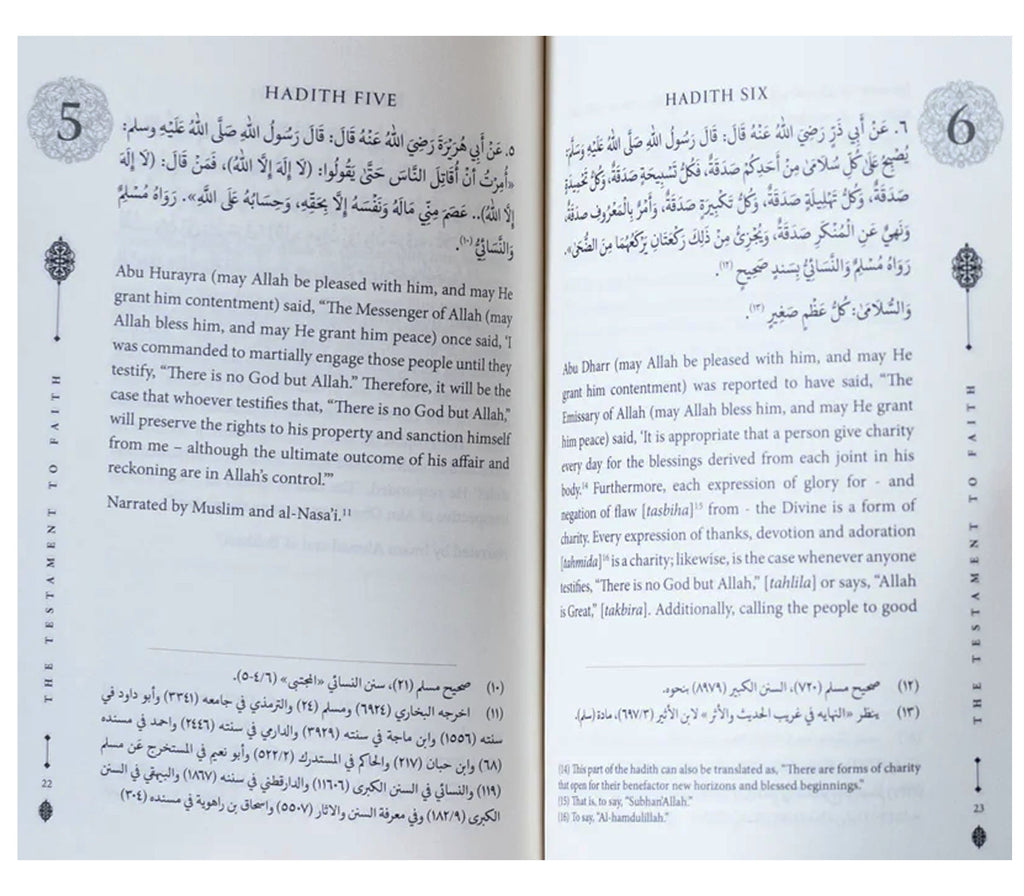 5
HADITH FIVE
٥. عَنْ أَبِي هُرَيْرَةَ رَضِيَ اللهُ عَنْهُ قَالَ: قَالَ رَسُولُ اللهِ صَلَّى اللهُ عَلَيْهِ وسلم:
«أُمِرْتُ أَنْ أُقَاتِلَ النَّاسَ حَتَّى يَقُولُوا: (لَا إِلَهَ إِلَّا اللهُ)، فَمَنْ قَالَ: (لَا إِلَهَ
إِلَّا اللهُ).. عَصَمَ مِنِّي مَالَهُ وَنَفْسَهُ إِلَّا بِحَقِّهِ، وَحِسَابُهُ عَلَى اللَّهِ». رَوَاهُ مُسْلِمٌ
وَالنَّسَائِيُّ (١٠).
Abu Hurayra (may Allah be pleased with him, and may He
grant him contentment) said, “The Messenger of Allah (may
Allah bless him, and may He grant him peace) once said, ‘I
was commanded to martially engage those people until they
testify, “There is no God but Allah.” Therefore, it will be the
case that whoever testifies that, “There is no God but Allah,”
will preserve the rights to his property and sanction himself
from me – although the ultimate outcome of his affair and
reckoning are in Allah’s control.’”
Narrated by Muslim and al-Nasa’i.11
(١٠) صحيح مسلم (٢١)، سنن النسائي «المجتبى» (٤/٦-٥).
(١١) اخرجه البخاري (٦٩٢٤) ومسلم (٢٤) والترمذي في جامعه (٣٣٤١) وأبو داود في
سننه (١٥٥٦) وابن ماجة في سننه (٣٩٢٩) والدارمي في سننه (٢٤٤٦) واحمد في مسنده
(٦٨) وابن حبان (٢١٧) والحاكم في المستدرك (٥٢٢/٢) وأبو نعيم في المستخرج عن مسلم
(١١٩) والنسائي في السنن الكبرى (١١٦٠٦) والدارقطني في سننه (١٨٦٧) والبيهقي في السنن
الكبرى (١٨٢/٩) وفي معرفة السنن والاثار (٥٥٠٧) واسحاق بن راهوية في مسنده (٣٠٤)
THE TESTAMENT TO FAITH
22
6
HADITH SIX
٦. عَنْ أَبِي ذَرٍّ رَضِيَ اللهُ عَنْهُ قَالَ: قَالَ رَسُولُ اللهِ صَلَّى اللهُ عَلَيْهِ وَسَلَّمَ:
يُصْبِحُ عَلَى كُلِّ سُلَامَى مِنْ أَحَدِكُمْ صَدَقَةٌ، فَكُلُّ تَسْبِيحَةٍ صَدَقَةٌ، وَكُلُّ تَحْمِيدَةٍ
صَدَقَةٌ، وَكُلُّ تَهْلِيلَةٍ صَدَقَةٌ، وَكُلُّ تَكْبِيرَةٍ صَدَقَةٌ، وَأَمْرٌ بِالْمَعْرُوفِ صَدَقَةٌ
وَنَهْيٌ عَنِ الْمُنْكَرِ صَدَقَةٌ، وَيُجْزِئُ مِنْ ذَلِكَ رَكْعَتَانِ يَرْكَعُهُمَا مِنَ الضُّحَى».
رَوَاهُ مُسْلِمٌ وَالنَّسَائِيُّ بِسَنَدٍ صَحِيحٍ (١٢).
وَالسُّلَامَى: كُلُّ عَظْمٍ صَغِيرٍ (١٣).
Abu Dharr (may Allah be pleased with him, and may He
grant him contentment) was reported to have said, “The
Emissary of Allah (may Allah bless him, and may He grant
him peace) said, ‘It is appropriate that a person give charity
every day for the blessings derived from each joint in his
body.14 Furthermore, each expression of glory for - and
negation of flaw [tasbiha]15 from - the Divine is a form of
charity. Every expression of thanks, devotion and adoration
[tahmida]16 is a charity; likewise, is the case whenever anyone
testifies, “There is no God but Allah,” [tahlila] or says, “Allah
is Great,” [takbira]. Additionally, calling the people to good
(١٢) صحيح مسلم (٧٢٠)، السنن الكبير (٨٩٧٩) بنحوه.
(١٣) ينظر «النهايه في غريب الحديث والأثر» لابن الأثير (٦٩٧/٣)، مادة (سلم).
(14) This part of the hadith can also be translated as, “There are forms of charity
that open for their benefactor new horizons and blessed beginnings.”
(15) That is, to say, “Subhan’Allah.”
(16) To say, “Al-hamdulillah.”
THE TESTAMENT TO FAITH
23